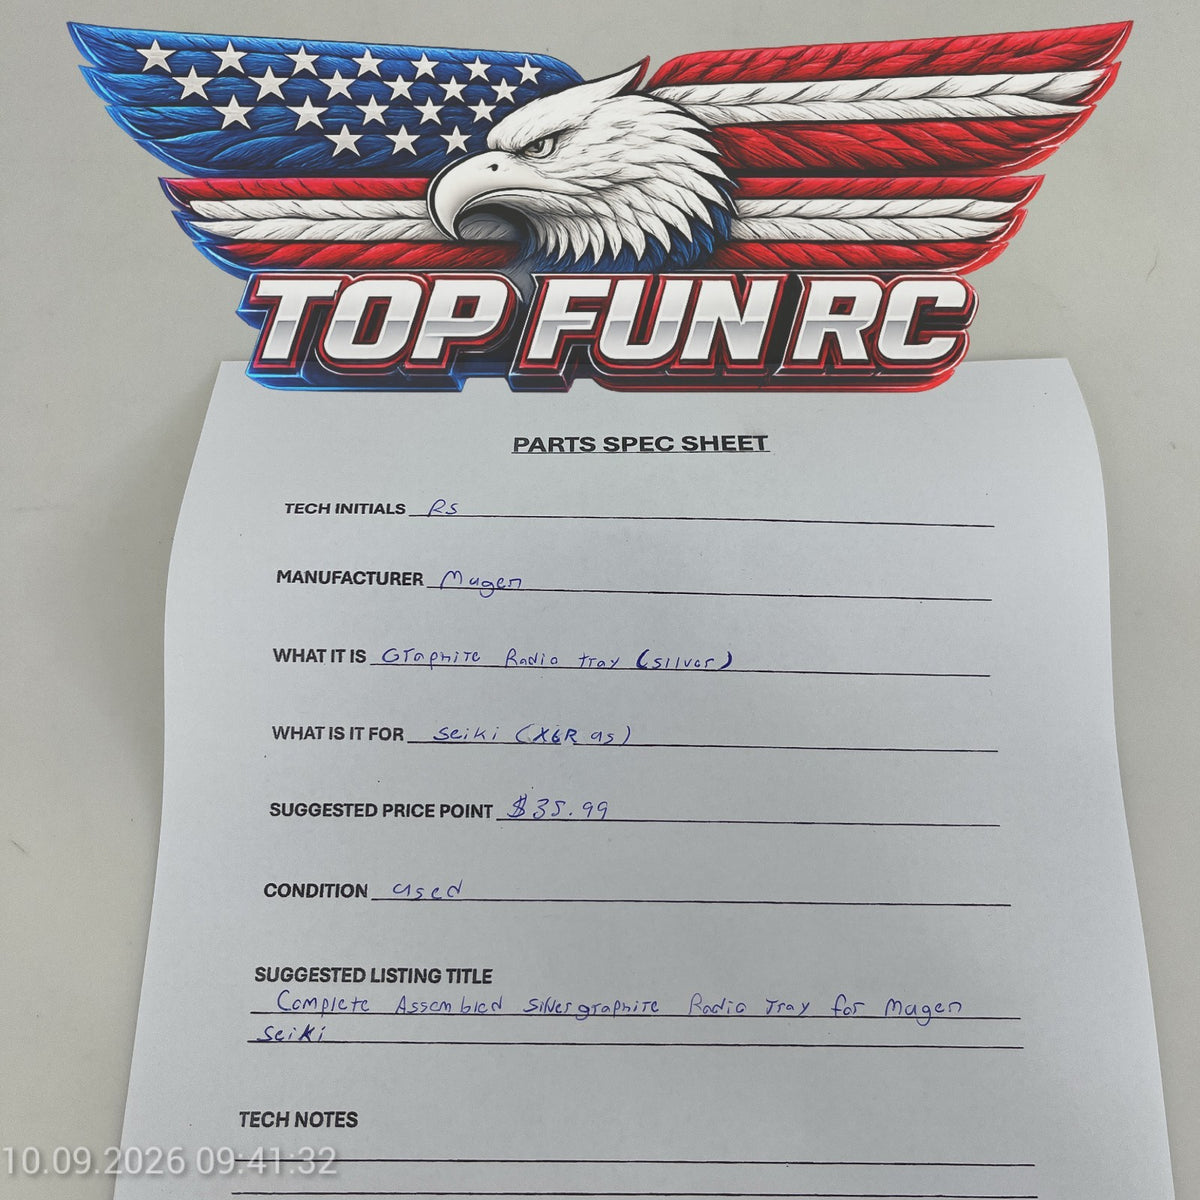 TOP FUN RC
PARTS SPEC SHEET
TECH INITIALS RS
MANUFACTURER Mugen
WHAT IT IS Graphite Radio tray (silver)
WHAT IS IT FOR Seiki (X6R as)
SUGGESTED PRICE POINT $35.99
CONDITION used
SUGGESTED LISTING TITLE
Complete Assembled silvergraphite Radio Tray for Mugen
Seiki
TECH NOTES
10.09.2026 09:41:32